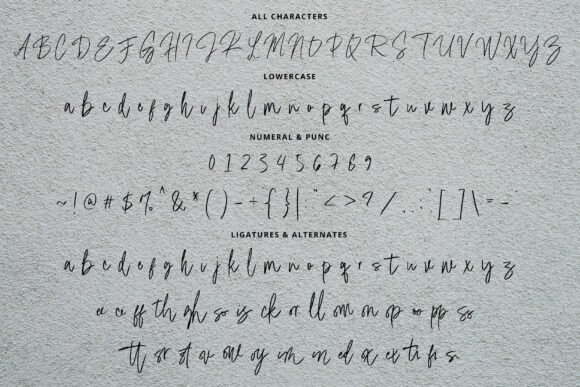 ALL CHARACTERS
A B C D E F G H I J K L M N O P Q R S T U V W X Y Z
LOWERCASE
a b c d e f g h i j k l m n o p q r s t u v w x y z
NUMERAL & PUNC
0 1 2 3 4 5 6 7 8 9
~ ! @ # $ % ^ & * ( ) - + { } | : " < > ? / , . ; ' [ ] \ = -
LIGATURES & ALTERNATES
a b c d e f g h i j k l m n o p q r s t u v w x y z
ff th gh so is ck or ll om on op oo pp ss
tt sr st ov ow oy im in ed ox ex tr fr